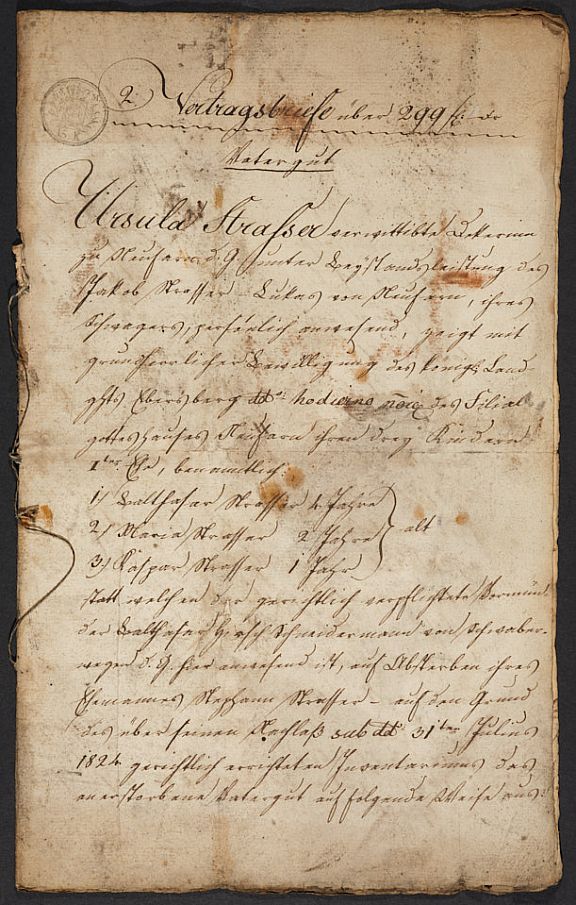 2 Vertragsbriefe über 299 f: dr
Vatergut
Ursula Strasser verwittibte Bekerinn
zu Neufarn d. G. unter Beystandsleistung des
Jakob Strasser – Lukas von Neufarn, ihres
Schwagers, persönlich anwesend, zeigt mit
grundherrlicher Bewilligung des königl: Land-
ghts Ebersberg dd° hodierno noie des Filial
gotteshauses Neufarn ihren drey Kindern
1ter Ehe, benamtlich:
1) Balthasar Strasser 4 Jahre
2) Maria Strasser 2 Jahre } alt
3) Kaspar Strasser 1 Jahr
statt welchen der gerichtlich verpflichtete Vormund
der Balthasar Hirsch Schneidermann von Schwaber-
wegen d. G. hier anwesend ist, auf Absterben ihres
Ehemannes Stephann Strasser – auf den Grund
des über seinen Nachlaß sub dd° 31ten Julius
1824 gerichtlich errichteten Inventariums das
anerstorbene Vatergut auf folgende Weise aus: